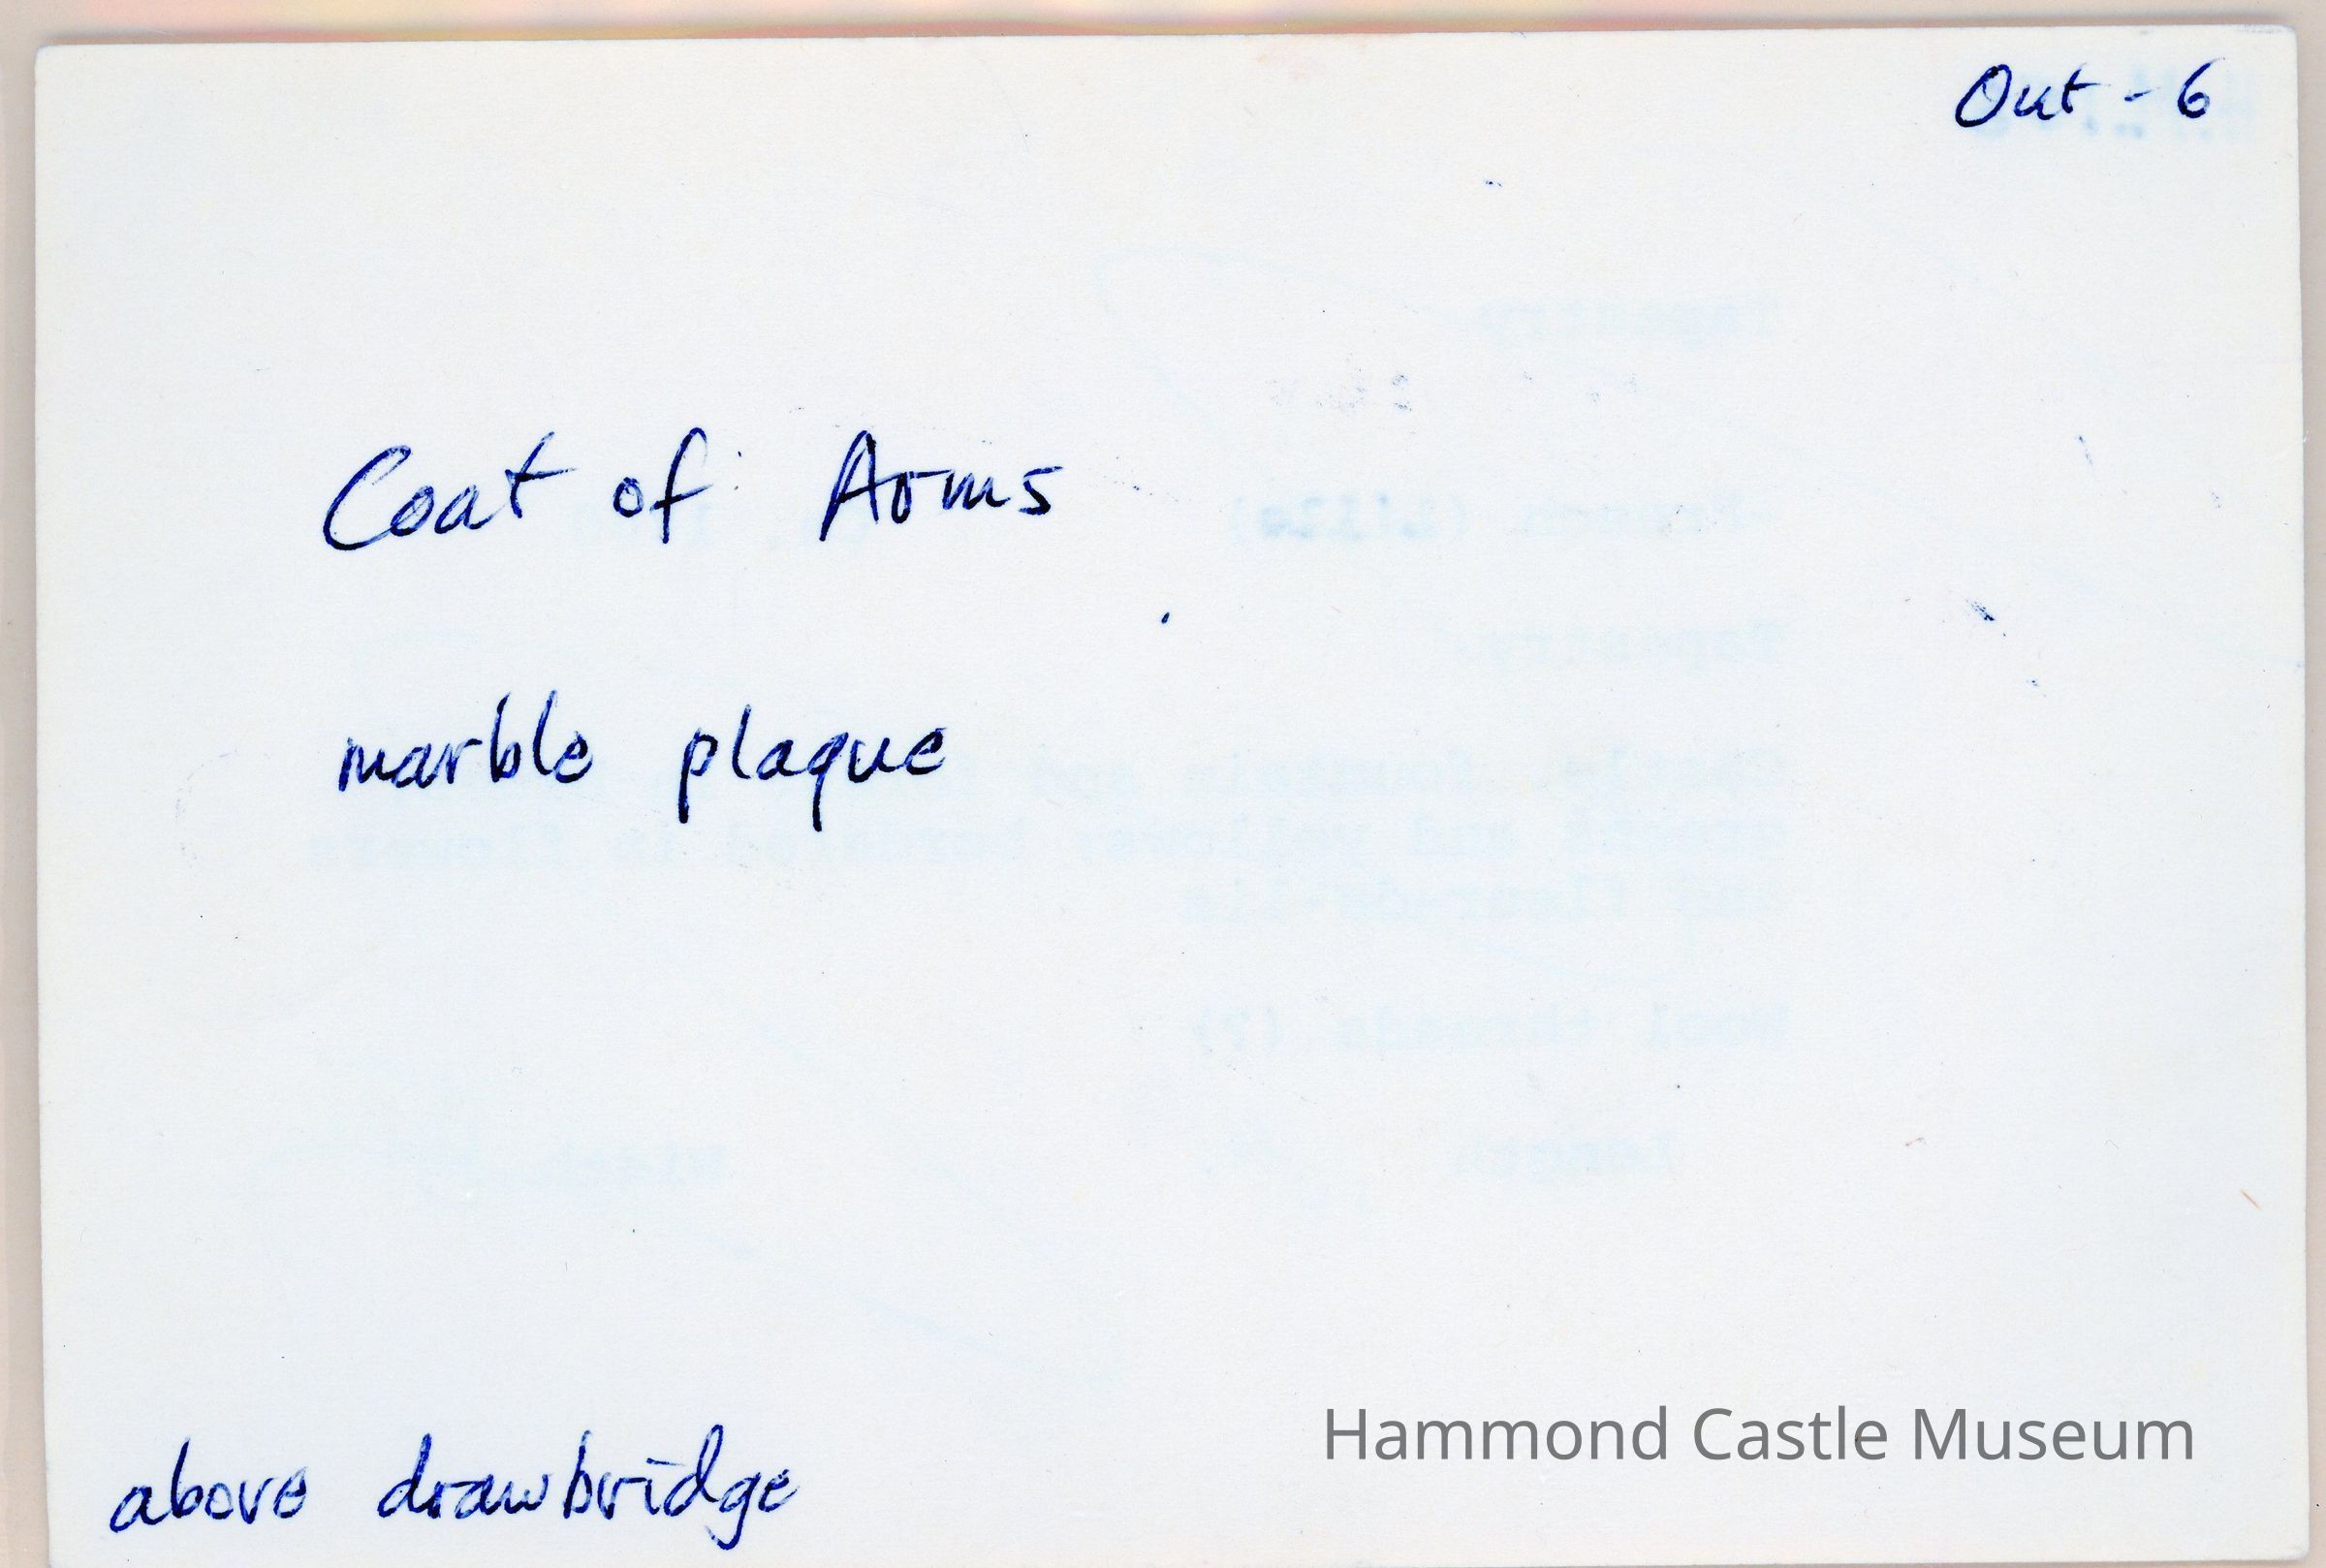 Out - 6
Coat of Arms
marble plaque
above drawbridge
Hammond Castle Museum